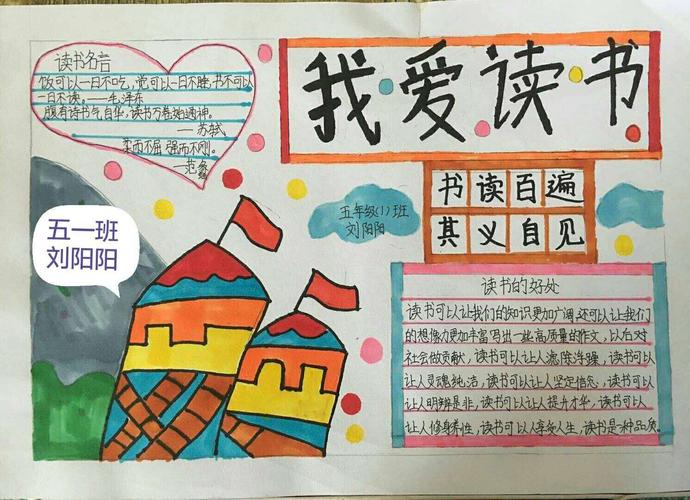 我爱读书
读书名言
饭可以一日不吃,觉可以一日不睡,书不可以
一日不读。——毛泽东
腹有诗书气自华,读书万卷始通神。
——苏轼
柔而不屈 强而不刚。
——范
五一班
刘阳阳
五年级(1)班
刘阳阳
书读百遍
其义自见
读书的好处
读书可以让我们的知识更加广阔,还可以让我们
的想像力更加丰富写出一些高质量的作文,以后对
社会做贡献,读书可以让人涤除浮躁,读书可以
让人灵魂纯洁,读书可以让人坚定信念,读书可以
让人明辨是非,读书可以让人提升才华,读书可以
让人修身养性,读书可以人享受人生,读书是一种品质。